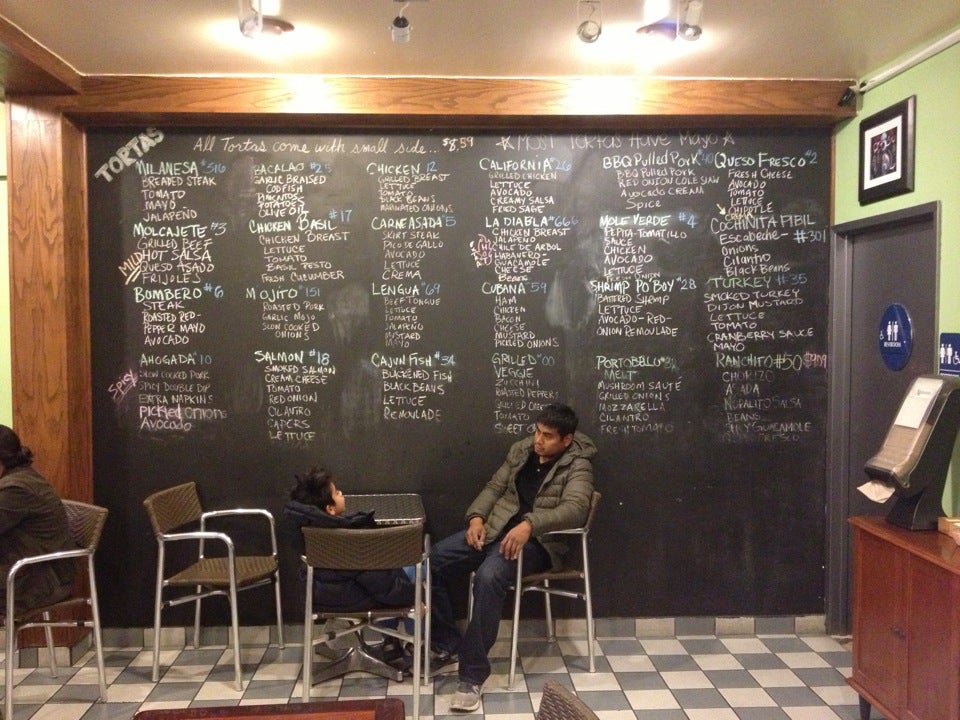 TORTAS
All Tortas come with small side... $8.59
★ Most Tortas Have Mayo ★
MILANESA #316
BREADED STEAK
TOMATO
MAYO
JALAPEÑO
MOLCAJETE #3
GRILLED BEEF
HOT SALSA
QUESO ASADO
FRIJOLES
MILD
BOMBERO #6
STEAK
ROASTED RED-
PEPPER MAYO
AVOCADO
AHOGADA #10
SLOW COOKED PORK
SPICY DOUBLE DIP
EXTRA NAPKINS
PICKLED ONIONS
AVOCADO
SPICY
BACALAO #25
GARLIC BRAISED
CODFISH
POTATOES
OLIVE OIL
CHICKEN BASIL #17
CHICKEN BREAST
LETTUCE
TOMATO
BASIL PESTO
FRESH CUCUMBER
MOJITO #151
ROASTED PORK
GARLIC MOJO
SLOW COOKED
ONIONS
SALMON #18
SMOKED SALMON
CREAM CHEESE
TOMATO
RED ONION
CILANTRO
CAPERS
LETTUCE
CHICKEN 12
GRILLED BREAST
LETTUCE
TOMATO
BLACK BEANS
MARINATED ONIONS
CARNE ASADA #5
SKIRT STEAK
PICO DE GALLO
AVOCADO
LETTUCE
CREMA
LENGUA #69
BEEF TONGUE
LETTUCE
TOMATO
JALAPEÑO
MUSTARD
MAYO
CAJUN FISH #34
BLACKENED FISH
BLACK BEANS
LETTUCE
REMOULADE
CALIFORNIA #26
GRILLED CHICKEN
LETTUCE
AVOCADO
CREAMY SALSA
FRIED SAGE
LA DIABLA #666
CHICKEN BREAST
JALAPEÑO
CHILE DE ARBOL
HABANERO-
GUACAMOLE
CHEESE
BEANS
CUBANA #59
HAM
CHICKEN
BACON
CHEESE
MUSTARD
PICKLED ONIONS
GRILLED #00
VEGGIE
ZUCCHINI
ROASTED PEPPERS
CHEESE
TOMATO
SWEET
BBQ Pulled Pork #40
BBQ Pulled Pork
RED ONION COLE SLAW
AVOCADO CREAM
SPICE
MOLE VERDE #4
PEPITA-TOMATILLO
SAUCE
CHICKEN
AVOCADO
LETTUCE
ONION
SHRIMP PO' BOY #28
BATTERED SHRIMP
LETTUCE
AVOCADO-RED-
ONION REMOULADE
PORTOBELLO
MELT
MUSHROOM SAUTE
GRILLED ONIONS
MOZZARELLA
CILANTRO
FRESH TOMATO
QUESO FRESCO #2
FRESH CHEESE
AVOCADO
TOMATO
LETTUCE
CHIPOTLE
COCHINITA PIBIL
#301
ESCABECHE-
ONIONS
CILANTRO
BLACK BEANS
TURKEY #35
SMOKED TURKEY
DIJON MUSTARD
LETTUCE
TOMATO
CRANBERRY SAUCE
MAYO
RANCHITO #50 $9.09
CHORIZO
ASADA
NOPALITO SALSA
BEANS
SPICY GUACAMOLE
QUESO FRESCO
RESTROOM